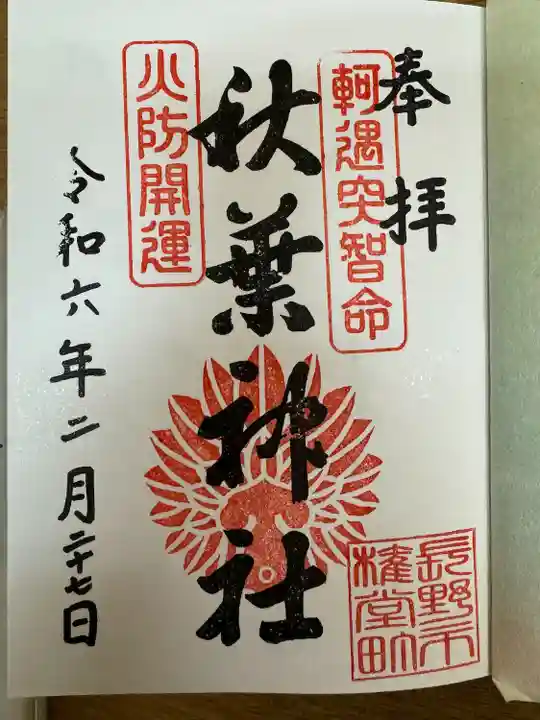 奉拝
軻遇突智命
秋葉神社
火防開運
令和六年二月二十七日
長野市
権堂町